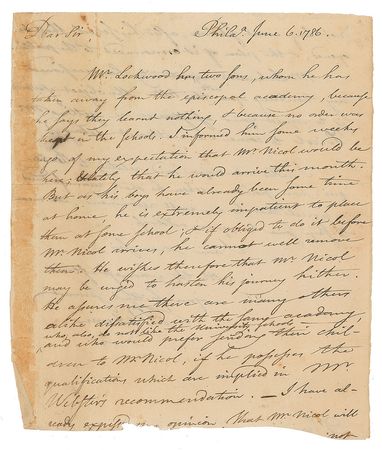 Dear Sir, Philada. June 6. 1786.
Mr. Lockwood has two sons, whom he has
taken away from the episcopal academy, because
he says they learnt nothing, & because no order was
kept in the schools. I informed him some weeks
ago of my expectation that Mr. Nicol would be
here, & that he would arrive this month.
But as his boys have already been some time
at home, he is extremely impatient to place
them at some school; & if obliged to do it before
Mr. Nicol arrives, he cannot well remove
them. He wishes therefore that Mr. Nicol
may be urged to hasten his journey hither.
He assures me there are many others
alike dissatisfied with the same academy,
who, also, do not like the University schools,
and who would prefer sending their chil-
dren to Mr. Nicol, if he possesses the
qualifications which are implied in Mr.
Webster's recommendation. — I have al-
ready expressed my opinion that Mr. Nicol will
not